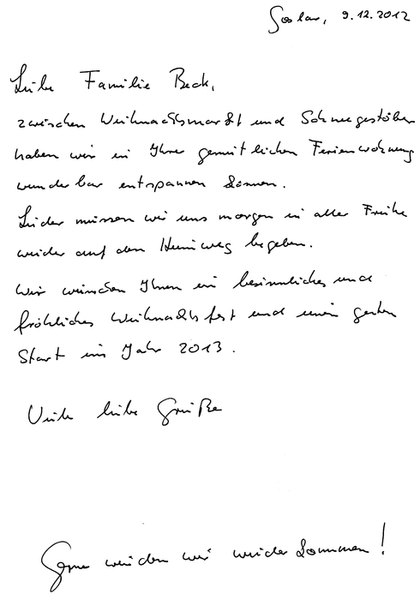 Goslar, 9.12.2012
Liebe Familie Beck,
zwischen Weihnachtsmarkt und Schneegestöber
haben wir in Ihrer gemütlichen Ferienwohnung
wunderbar entspannen können.
Leider müssen wir uns morgen in aller Frühe
wieder auf den Heimweg begeben.
Wir wünschen Ihnen ein besinnliches und
fröhliches Weihnachtsfest und einen guten
Start ins Jahr 2013.
Viele liebe Grüße
Gerne würden wir wieder kommen!